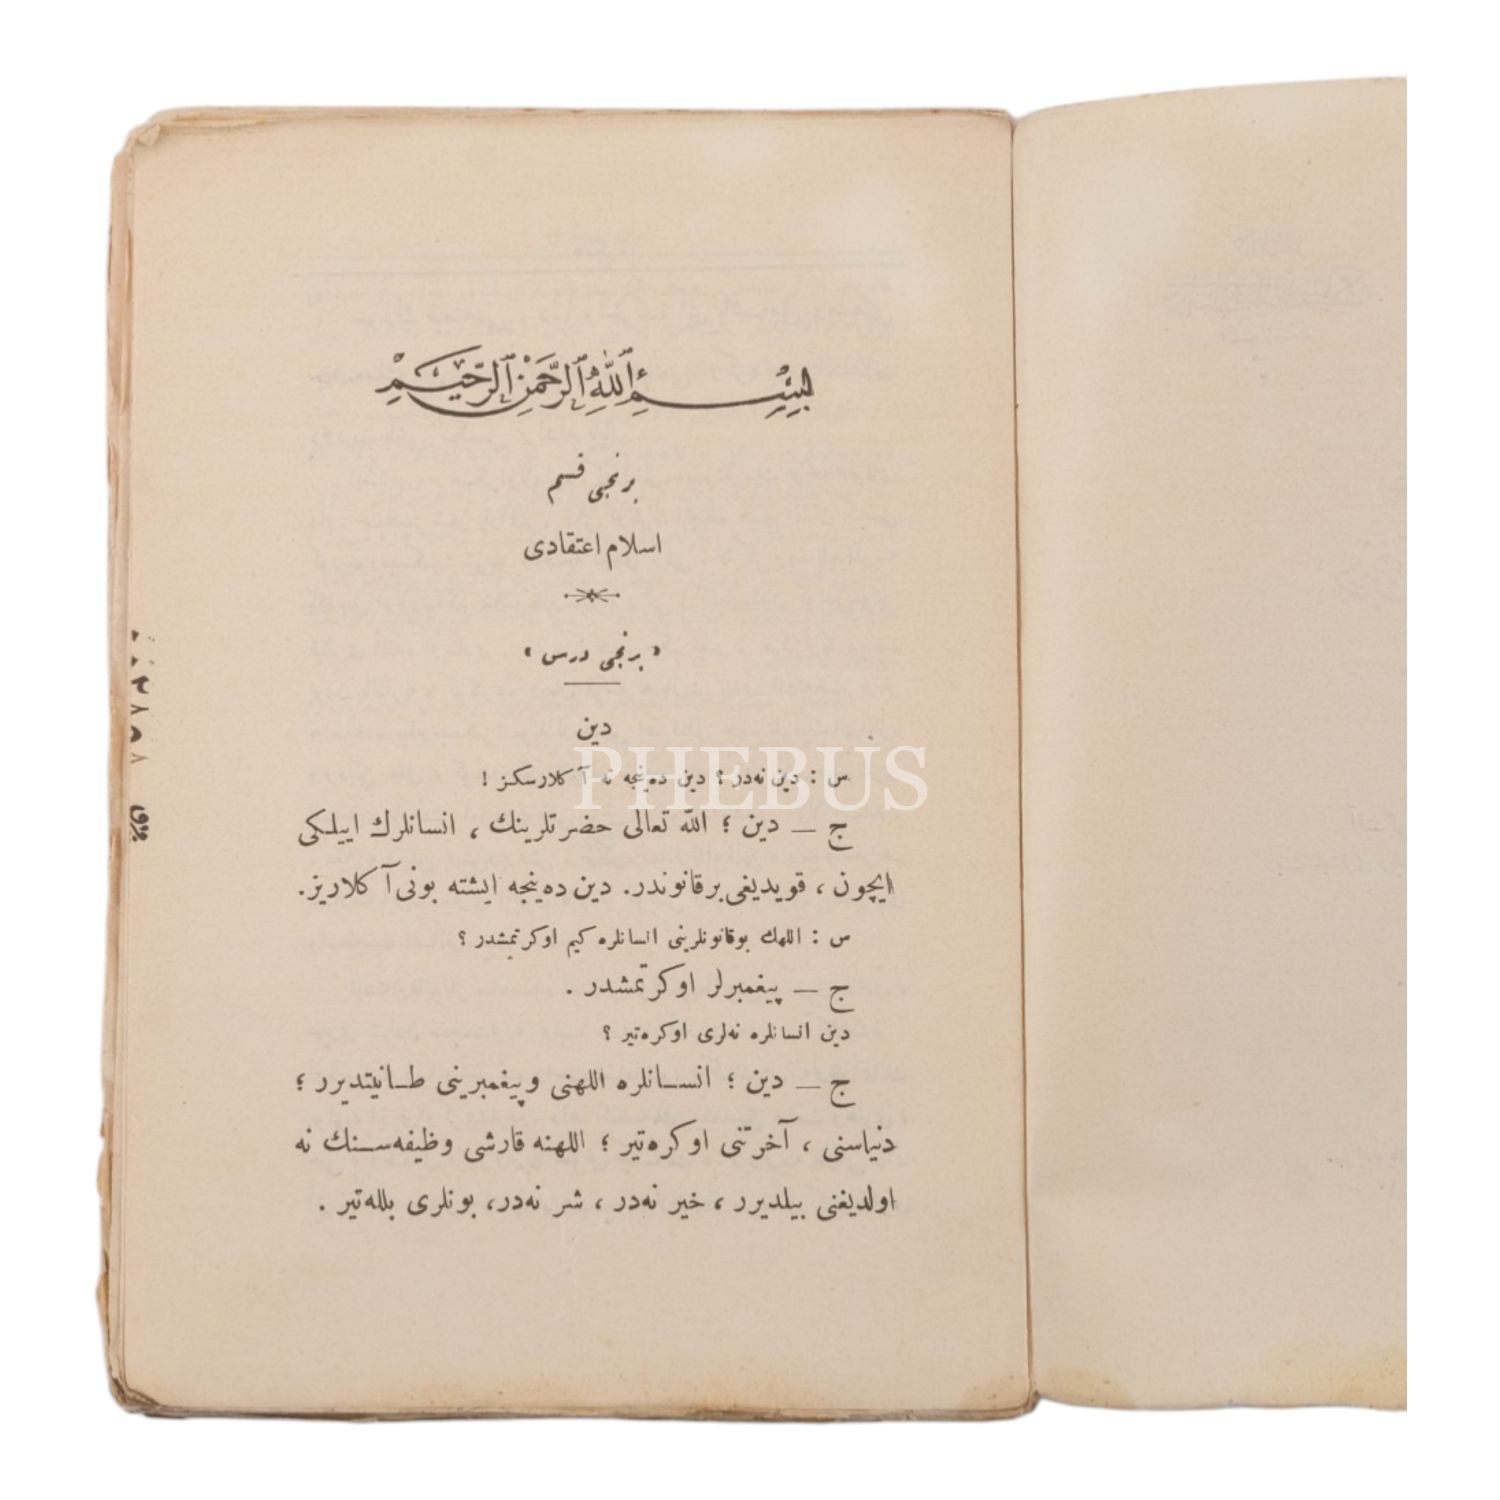 بسم الله الرحمن الرحيم
برنجی قسم
اسلام اعتقادی
« برنجی درس »
دین
س : دین نه‌در ؟ دین ده‌ینجه نه آكلارسكز !
ج — دین ؛ الله تعالی حضرتلرینك ، انسانلرك اییلكی
ایچون ، قویدیغی برقانوندر. دین ده‌ینجه ایشته بونی آكلاریز.
س : اللهك بوقانونلرینی انسانلره كیم اوكرتمشدر ؟
ج — پیغمبرلر اوكرتمشدر .
دین انسانلره نه‌لری اوكره‌تیر ؟
ج — دین ؛ انسانلره اللهنی وپیغمبرینی طانیتدیرر ؛
دنیاسنی ، آخرتنی اوكره‌تیر ؛ اللهنه قارشی وظیفه‌سنك نه
اولدیغنی بیلدیرر ، خیر نه‌در ، شر نه‌در، بونلری بلله‌تیر .
PHEBUS